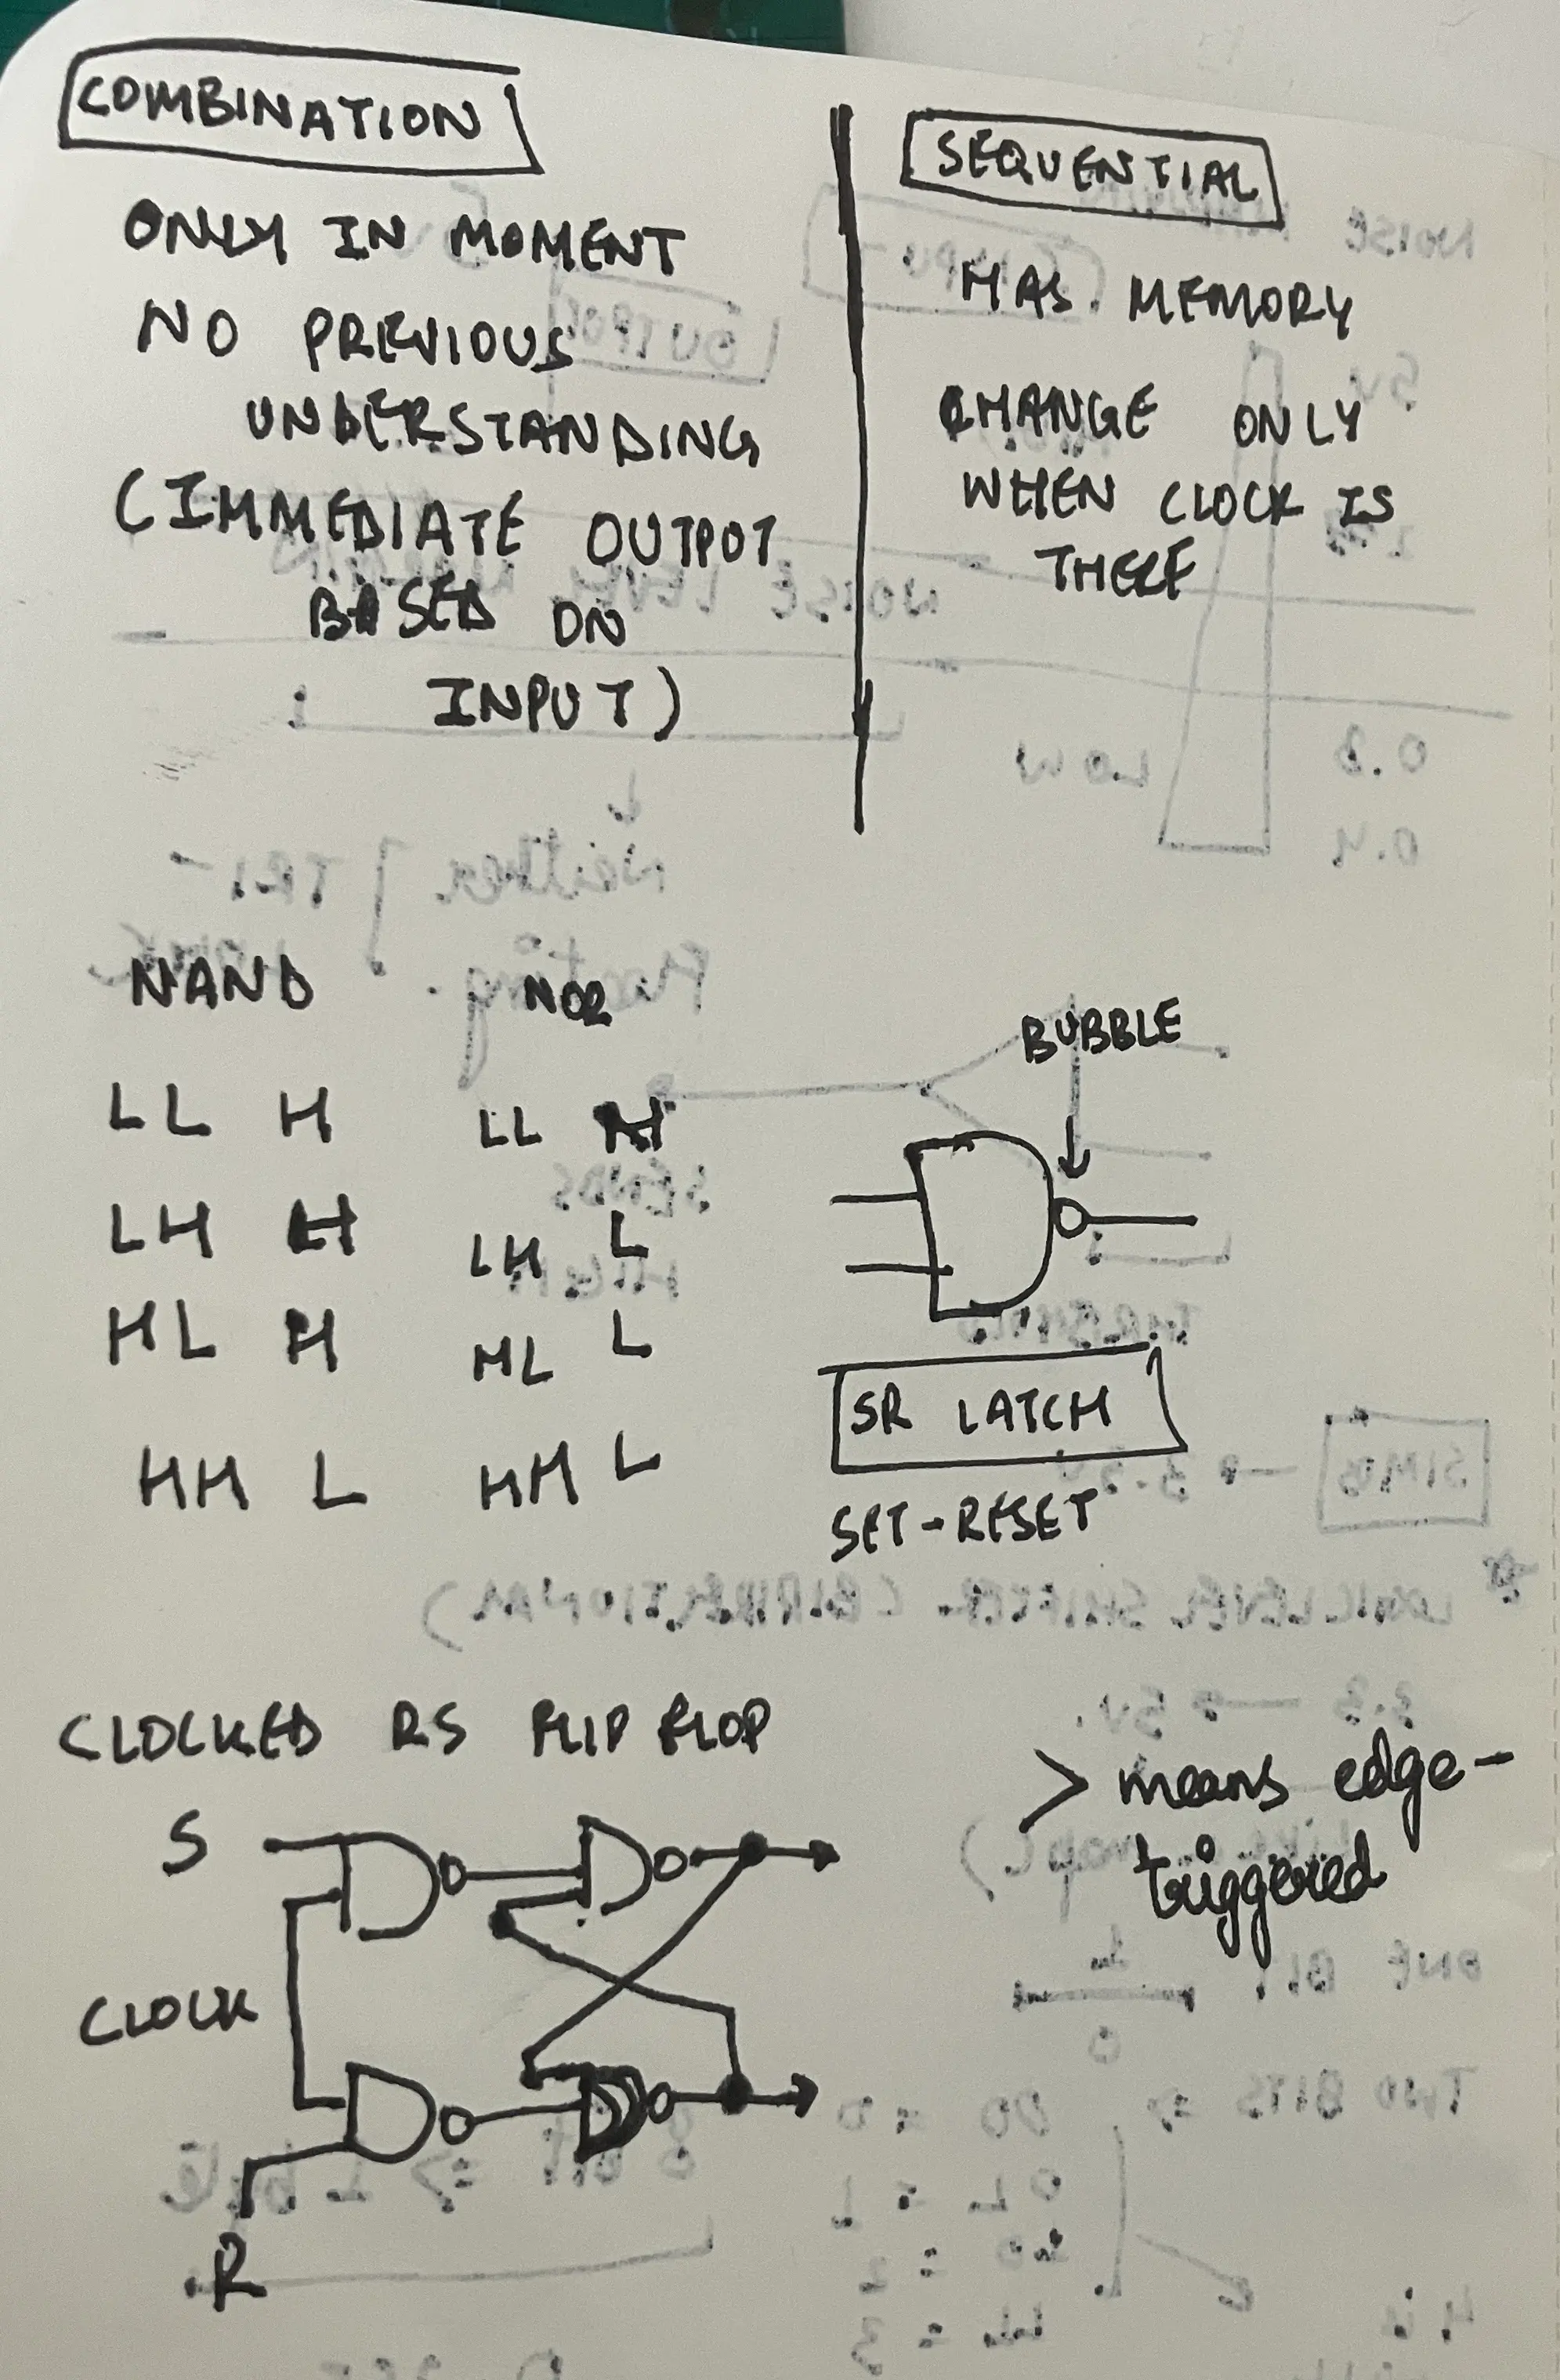 COMBINATION
ONLY IN MOMENT
NO PREVIOUS
UNDERSTANDING
(IMMEDIATE OUTPUT
BASED ON
INPUT)
SEQUENTIAL
HAS MEMORY
CHANGE ONLY
WHEN CLOCK IS
THERE
NAND
LL H
LH H
HL H
HH L
NOR
LL H
LH L
HL L
HH L
BUBBLE
SR LATCH
SET-RESET
CLOCKED RS FLIP FLOP
S
CLOCK
R
> means edge-
triggered